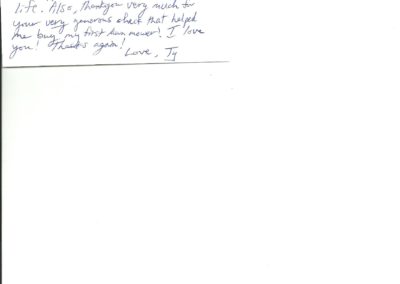 life. Also, thank you very much for
your very generous check that helped
me buy my first lawn mower! I love
you! Thanks again!
Love, Ty